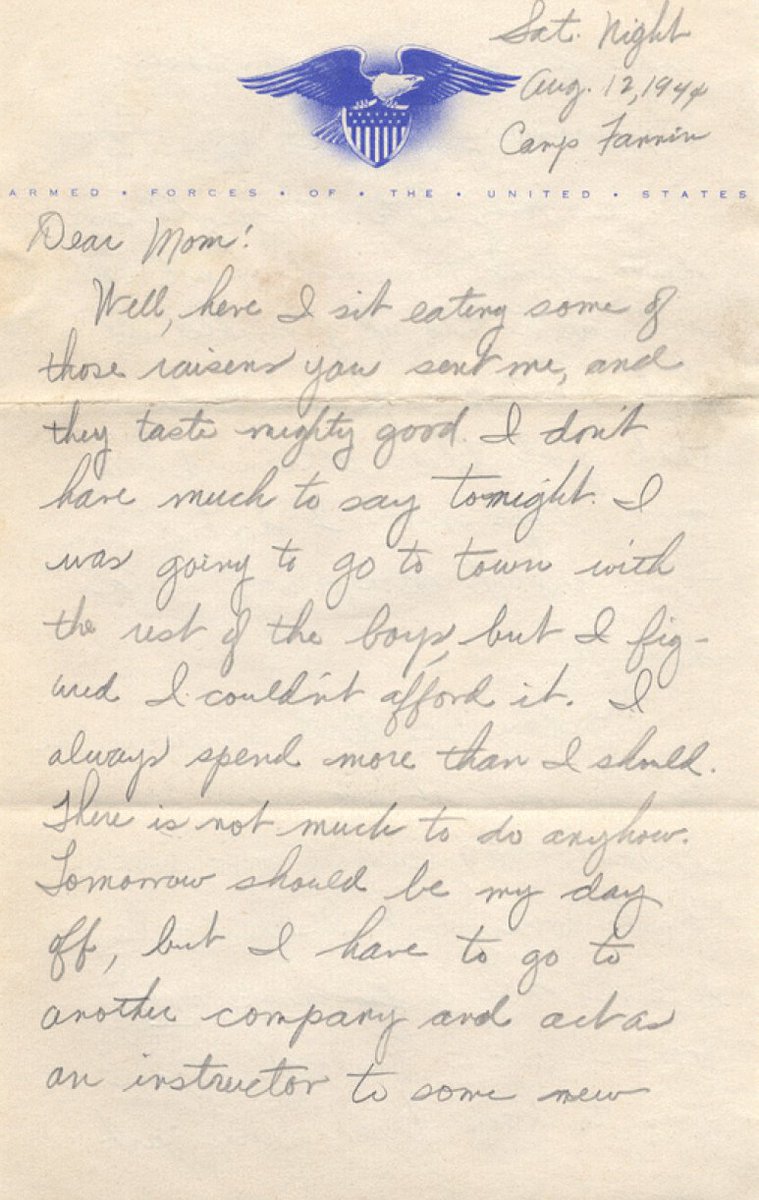 Sat. Night
Aug. 12, 1944
Camp Fannin
ARMED • FORCES • OF • THE • UNITED • STATES
Dear Mom!
Well, here I sit eating some of
those raisens you sent me, and
they taste mighty good. I don't
have much to say tonight. I
was going to go to town with
the rest of the boys, but I fig-
ured I couldn't afford it. I
always spend more than I should.
There is not much to do anyhow.
Tomorrow should be my day
off, but I have to go to
another company and act as
an instructor to some new